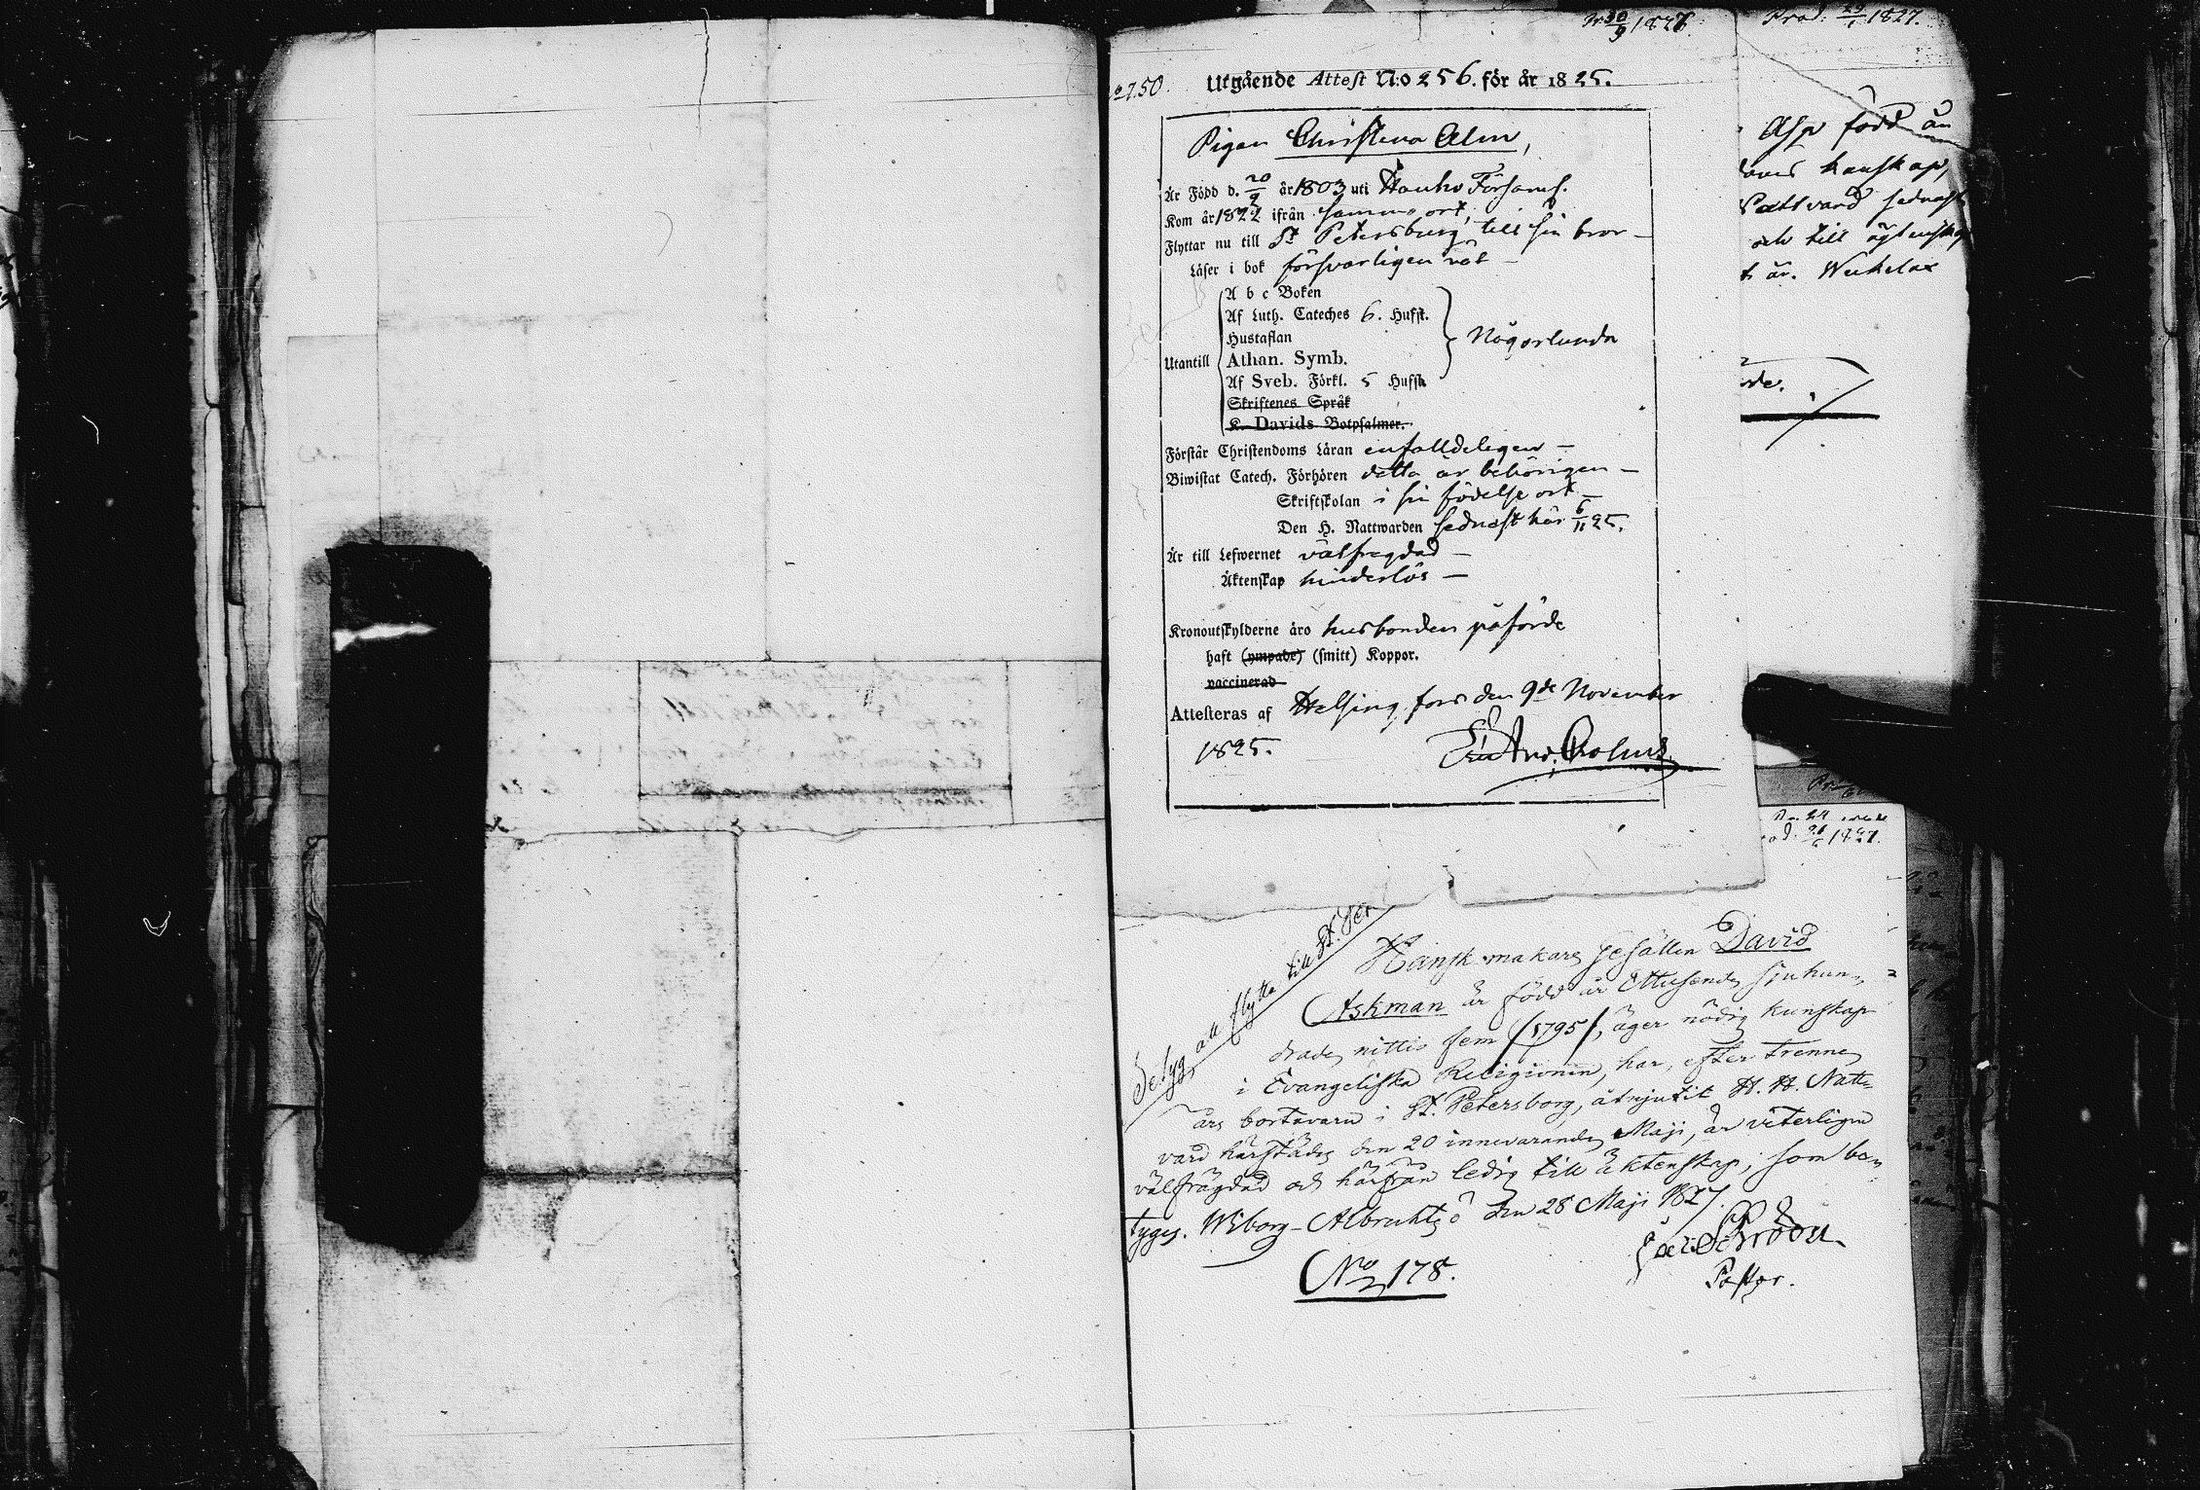 Pr 30/9 1827
No 250.
Utgående Attest N:o 256. för år 1825.
Pigan Christina Alm,
Är Född d. 20/2 år 1803 uti Hauho Församl.
Kom år 1822 ifrån samma ort,
Flyttar nu till St Petersburg till sin bror –
Läser i bok försvarligen väl –
A b c Boken
Af Luth. Cateches 6. Hufst.
Hustaflan
Utantill Athan. Symb. Någorlunda
Af Sveb. Förkl. 5 Hufst.
Skriftenes Språk
K. Davids Botpsalmer.
Förstår Christendoms Läran enfalldeligen –
Biwistat Catech. Förhören detta år behörigen –
Skriftskolan i sin födelse ort –
Den H. Nattwarden sednast här 6/11 25.
Är till Lefwernet välfregdad –
Äktenskap hinderlös –
Kronoutskylderne äro husbonden påförde
haft (ympade) (smitt) Koppor.
vaccinerad
Attesteras af Helsingfors den 9de November
1825.
Prod: 1827.
Asp född år
kunskap,
Nattvard sednast
och till ägtenskap
är. Weckelax
1827.
Betyg att flytta till St. Pet.
Hanskmakare Gesällen David
Askman är född år Ettusende sjuhun-
drade nittio fem (1795), äger nödig kunskap
i Evangeliska Religionen, har, efter trenne
års bortavaru i St. Petersborg, åtnjutit H. H. Natt-
vard härstädes den 20 innevarande Maji, är viterligen
välfrägdad och härifrån ledig till äktenskap; som be-
tyges. Wiborg – Albrechtsö den 28 Maji 1827.
Schröder
Pastor.
No 178.